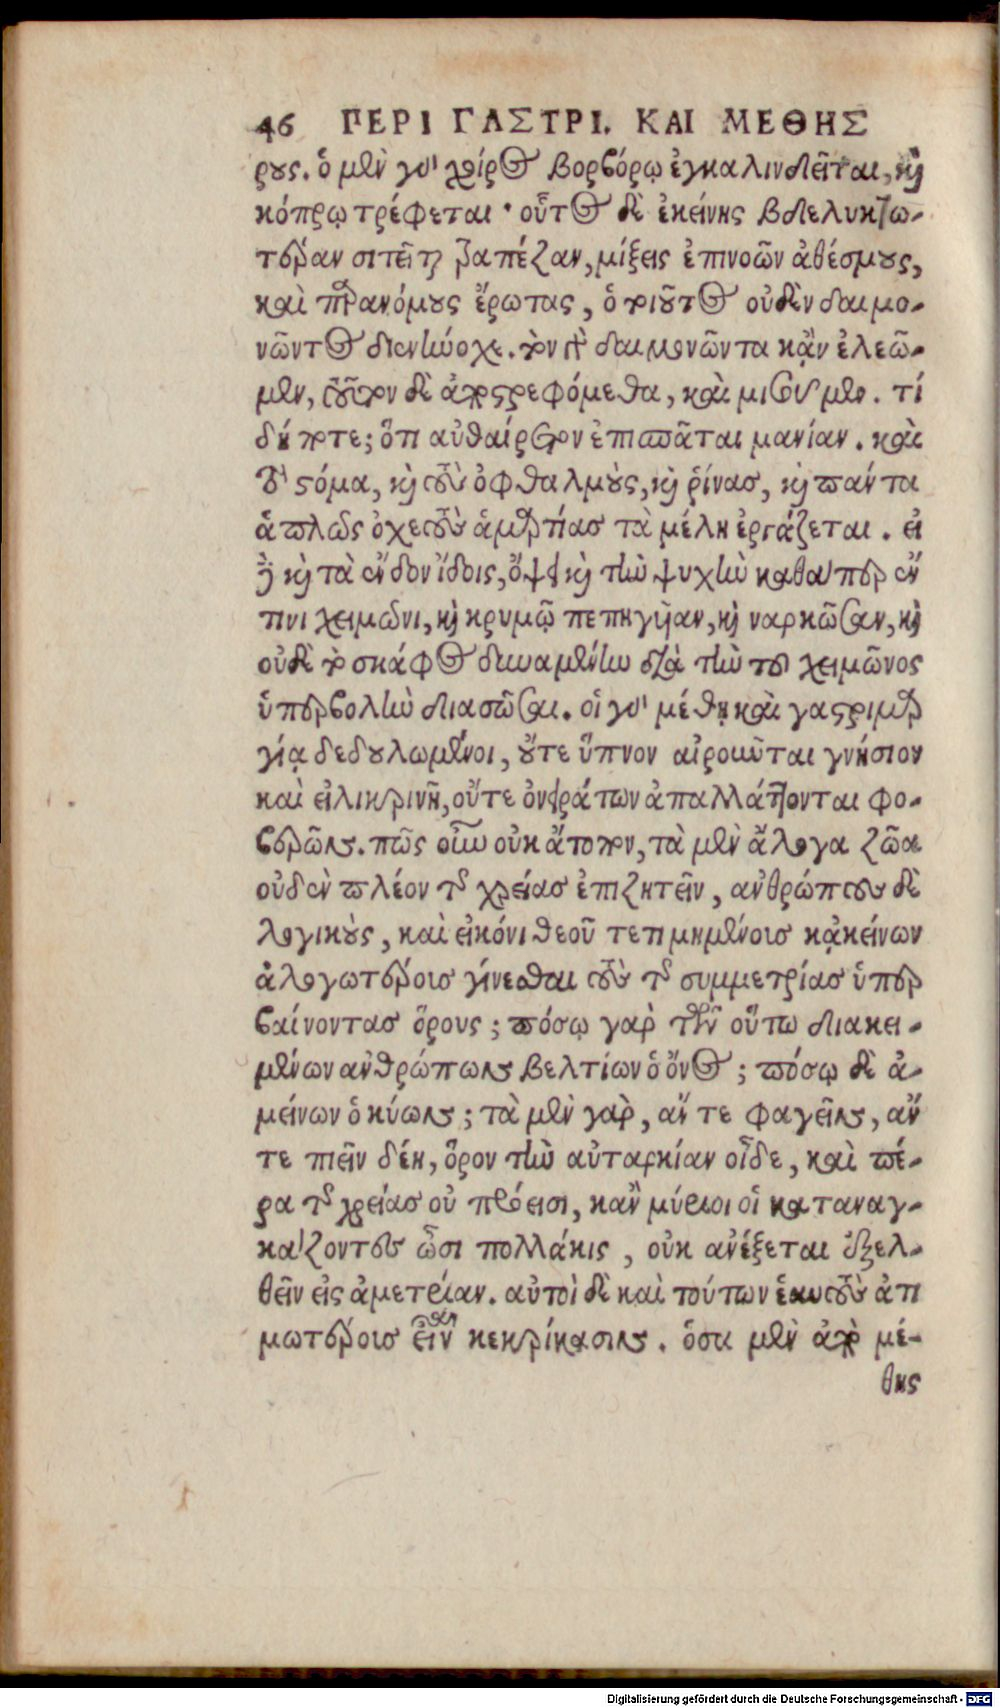 46 ΠΕΡΙ ΓΑΣΤΡΙ. ΚΑΙ ΜΕΘΗΣ
ρους. ὁ μὲν γὰρ χοῖρος βορβόρῳ ἐγκαλινδεῖται, καὶ
κόπρῳ τρέφεται· οὗτος δὲ ἐκείνης βδελυκτω-
τέραν σιτεῖται τράπεζαν, μίξεις ἐπινοῶν ἀθέσμους,
καὶ παρανόμους ἔρωτας, ὁ τοιοῦτος οὐδὲν δαιμο-
νῶντος διενήνοχε. τὸν μὲν δαιμονῶντα κᾂν ἐλεῶ-
μεν, τοῦτον δὲ ἀποστρεφόμεθα, καὶ μισοῦμεν. τί
δήποτε; ὅτι αὐθαίρετον ἐπισπᾶται μανίαν. καὶ
τὸ στόμα, καὶ τοὺς ὀφθαλμοὺς, καὶ ῥίνας, καὶ πάντα
ἁπλῶς ὀχετοὺς ἁμαρτίας τὰ μέλη ἐργάζεται. εἰ
δὲ καὶ τὰ ἔνδον ἴδοις, ὄψει καὶ τὴν ψυχὴν καθάπερ ἔν
τινι χειμῶνι, καὶ κρυμῷ πεπηγυῖαν, καὶ ναρκῶσαν, καὶ
οὐδὲν τὸ σκάφος δυναμένην διὰ τὴν τοῦ χειμῶνος
ὑπερβολὴν διασῶσαι. οἱ γὰρ μέθῃ καὶ γαστριμαρ
γίᾳ δεδουλωμένοι, οὔτε ὕπνον αἱροῦνται γνήσιον
καὶ εἰλικρινῆ, οὔτε ὀνειράτων ἀπαλλάττονται φο-
βερῶν. πῶς οὖν οὐκ ἄτοπον, τὰ μὲν ἄλογα ζῶα
οὐδὲν πλέον τῆς χρείας ἐπιζητεῖν, ἀνθρώπους δὲ
λογικοὺς, καὶ εἰκόνι θεοῦ τετιμημένοις κᾀκείνων
ἀλογωτέροις γίνεσθαι τοὺς τῆς συμμετρίας ὑπερ
βαίνοντας ὅρους; πόσῳ γὰρ τῶν οὕτω διακει-
μένων ἀνθρώπων βελτίων ὁ ὄνος; πόσῳ δὲ ἀ-
μείνων ὁ κύων; τὰ μὲν γὰρ, ἄν τε φαγεῖν, ἄν
τε πιεῖν δέῃ, ὅρον τὴν αὐτάρκίαν οἶδε, καὶ πέ-
ρα τῆς χρείας οὐ πρόεισι, κᾂν μύριοι οἱ καταναγ-
κάζοντες ὦσι πολλάκις, οὐκ ἀνέξεται ἐξελ-
θεῖν εἰς ἀμετρίαν. αὐτοὶ δὲ καὶ τούτων ἑαυτοὺς ἀτι
μωτέροις εἶναι κεκρίκασιν. ὅσα μὲν ἀπὸ μέ-
θης
Digitalisierung gefördert durch die Deutsche Forschungsgemeinschaft - DFG